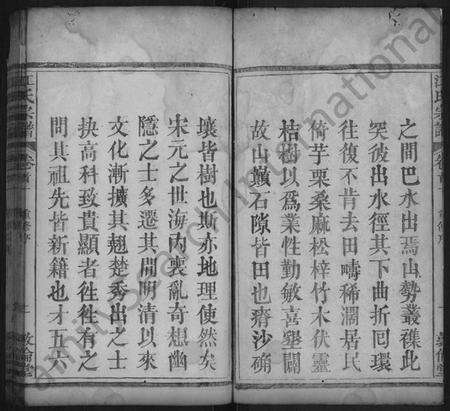 之間巴水出焉山勢叢襍此
突彼出水徑其下曲折回環
往復不肯去田疇稀濶居民
倚芋栗桑麻松梓竹木伏靈
桔樹以爲業性勤敏喜墾闢
故山巔石隙皆田也瘠沙磽
壤皆樹也斯亦地理使然矣
宋元之世海内喪亂奇想幽
隱之士多遷其間明清以來
文化漸擴其翹楚秀出之士
抉高科致貴顯者徃徃有之
問其祖先皆新籍也才五六
江氏宗譜
卷首
敦倫堂